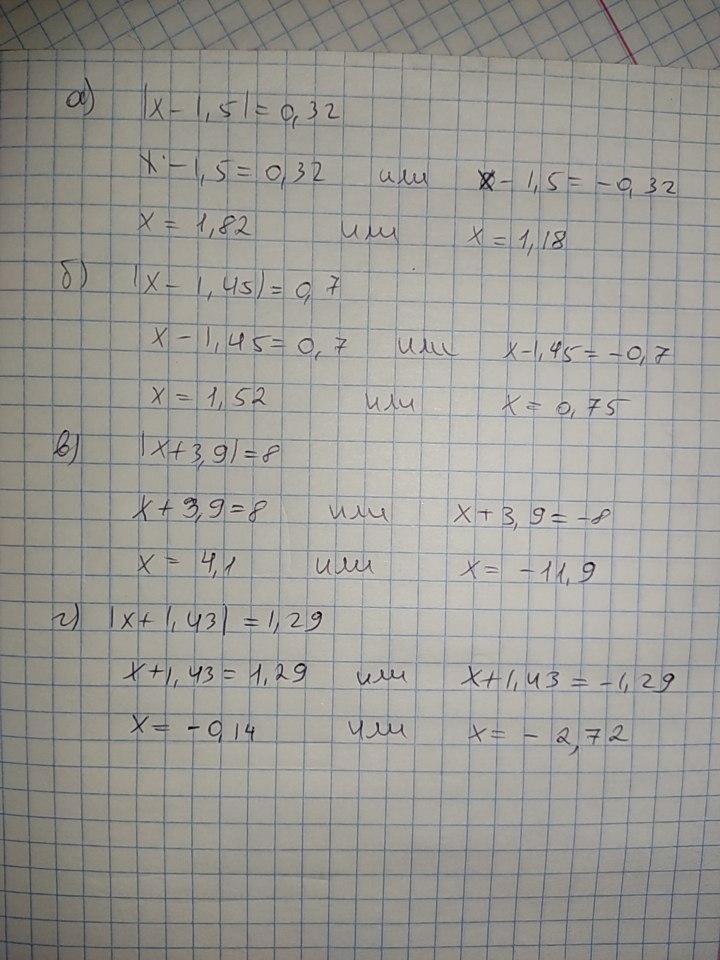 а) |x - 1,5| = 0,32
x - 1,5 = 0,32 или x - 1,5 = -0,32
x = 1,82 или x = 1,18
б) |x - 1,45| = 0,7
x - 1,45 = 0,7 или x - 1,45 = -0,7
x = 1,52 или x = 0,75
в) |x + 3,9| = 8
x + 3,9 = 8 или x + 3,9 = -8
x = 4,1 или x = -11,9
г) |x + 1,43| = 1,29
x + 1,43 = 1,29 или x + 1,43 = -1,29
x = -0,14 или x = - 2,72